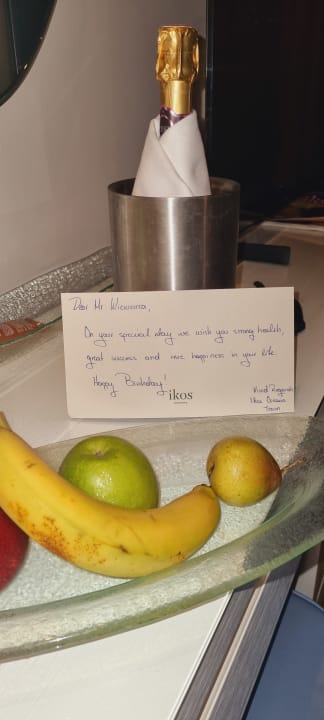 Dear Mr
On your special day we wish you strong health,
great success and more happiness in your life.
Happy Birthday!
ikos
Kind Regards
Ikos
Team